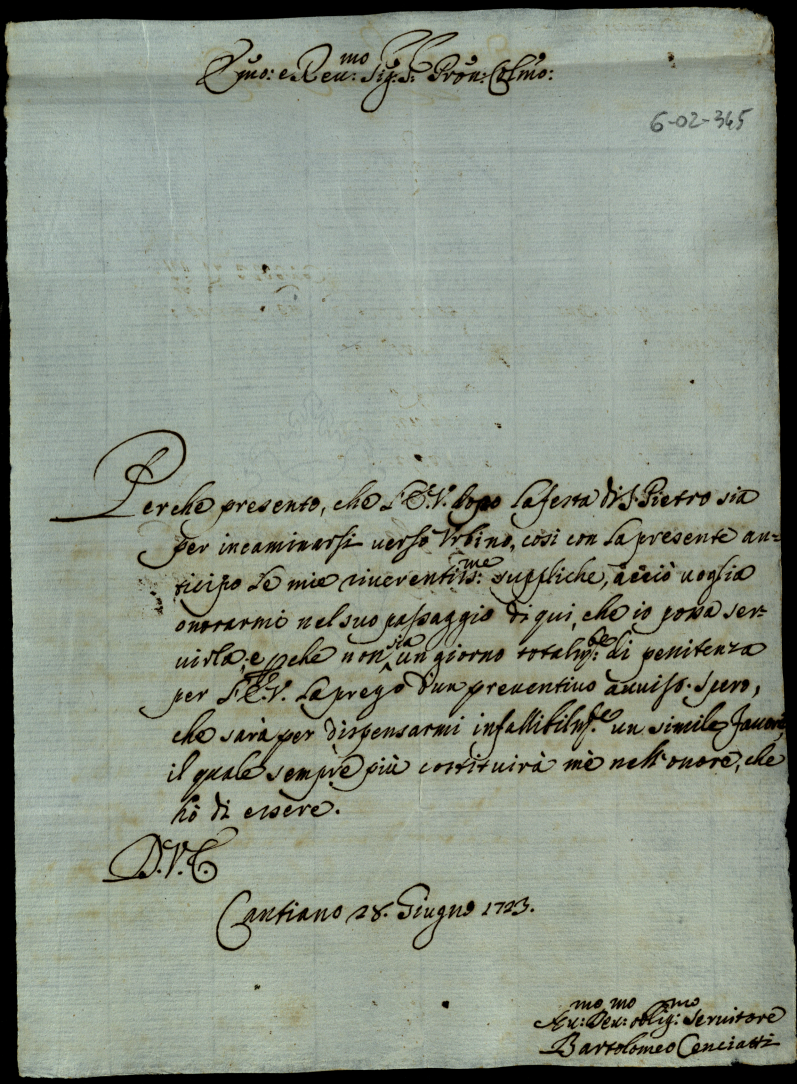 Emo: e Reu:mo Sig:r Pron: Colmo:
6-02-345
Perche presento, che l'E.V. dopo la festa di S. Pietro sia
per incaminarsi uerso Vrbino, così con la presente an-
ticipo le mie riuerentis:me suppliche, acciò uoglia
onorarmi nel suo passaggio di quì, che io possa ser-
uirla; e pche non sia un giorno totalm:te di penitenza
per l'E.V. la prego d'un preuentiuo auuiso. Spero,
che sarà per dispensarmi infallibilm:te un simile fauore,
il quale sempre più costituirà mè nell'onore, che
hò di essere.
D.V.E.
Cantiano 28. Giugno 1723.
Deu:mo obblig:mo seruitore
Bartolomeo Cenciatti